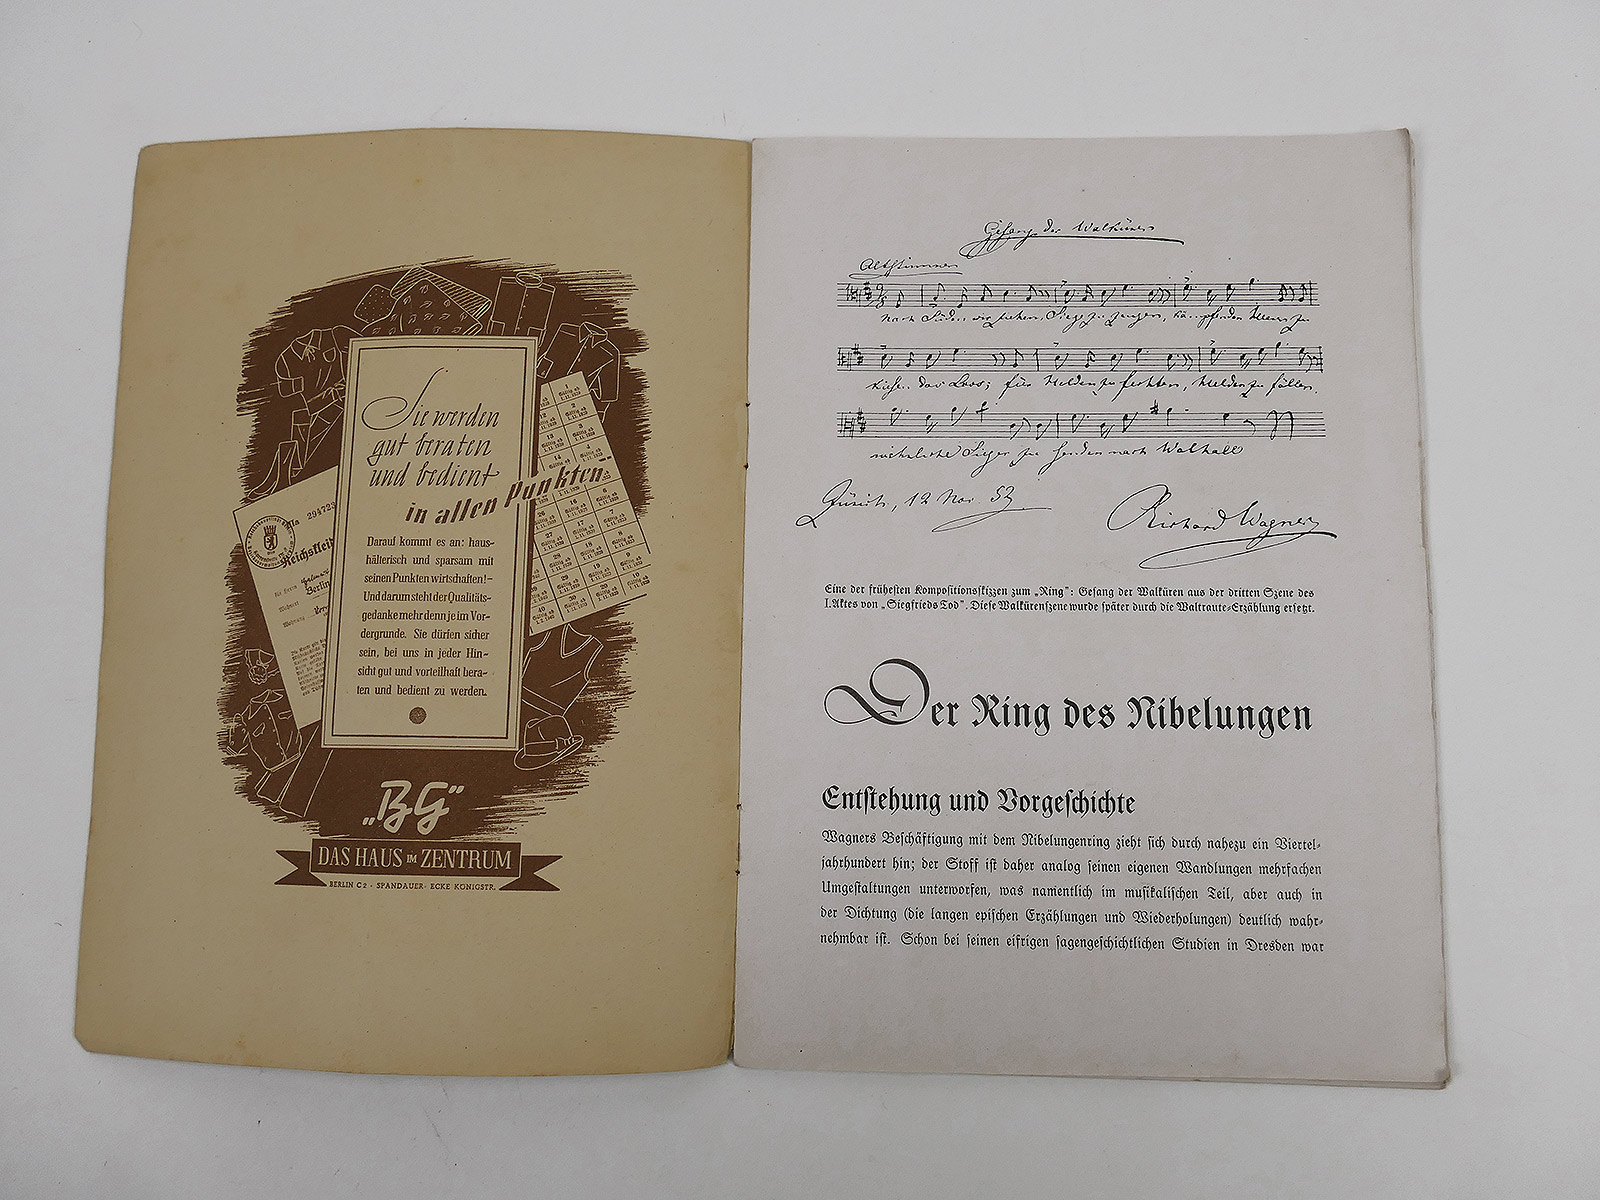 Sie werden
gut beraten
und bedient
in allen Punkten
Darauf kommt es an: haus-
hälterisch und sparsam mit
seinen Punkten wirtschaften! –
Und darum steht der Qualitäts-
gedanke mehr denn je im Vor-
dergrunde. Sie dürfen sicher
sein, bei uns in jeder Hin-
sicht gut und vorteilhaft bera-
ten und bedient zu werden.
Reichskleid
Berlin
„BG“
DAS HAUS IM ZENTRUM
BERLIN C 2 · SPANDAUER- ECKE KÖNIGSTR.
Gesang der Walküren
Altstimmen
Nach Süden wir ziehen, Siege zu zeugen, kämpfenden Heeren zu
kiesen das Loos; für Helden zu fechten, Helden zu fällen
Sieger zu senden nach Walhall
Zürich, 12 Nov. 52
Richard Wagner
Eine der frühesten Kompositionsskizzen zum „Ring“: Gesang der Walküren aus der dritten Szene des
I. Aktes von „Siegfrieds Tod“. Diese Walkürenszene wurde später durch die Waltraute-Erzählung ersetzt.
Der Ring des Nibelungen
Entstehung und Vorgeschichte
Wagners Beschäftigung mit dem Nibelungenring zieht sich durch nahezu ein Viertel-
jahrhundert hin; der Stoff ist daher analog seinen eigenen Wandlungen mehrfachen
Umgestaltungen unterworfen, was namentlich im musikalischen Teil, aber auch in
der Dichtung (die langen epischen Erzählungen und Wiederholungen) deutlich wahr-
nehmbar ist. Schon bei seinen eifrigen sagengeschichtlichen Studien in Dresden war